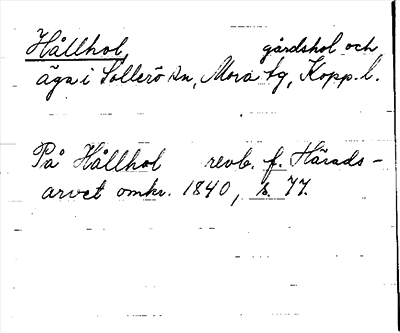 Hållhol, gårdshol och
äga i Sollerö sn, Mora tg, Kopp. l.
På Hållhol revb. f. Härads-
arvet omkr. 1840, s. 77.